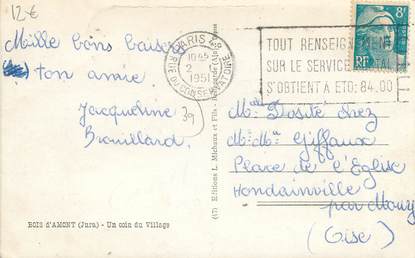 12€
Mille bons baisers
ton amie
Jacqueline
Brouillard
39
BOIS d'AMONT (Jura) - Un coin du Village
(17) Editions L. Michaux et Fils -
PARIS
10H45
2 - 1
1951
RUE DU CONSERVATOIRE
TOUT RENSEIGNEMENT
SUR LE SERVICE POSTAL
S'OBTIENT A ETO: 84.00
8F
RF
chez
Mr Mme Giffaux
Place de l'Eglise
Hondainville
par Mouy
(Oise)